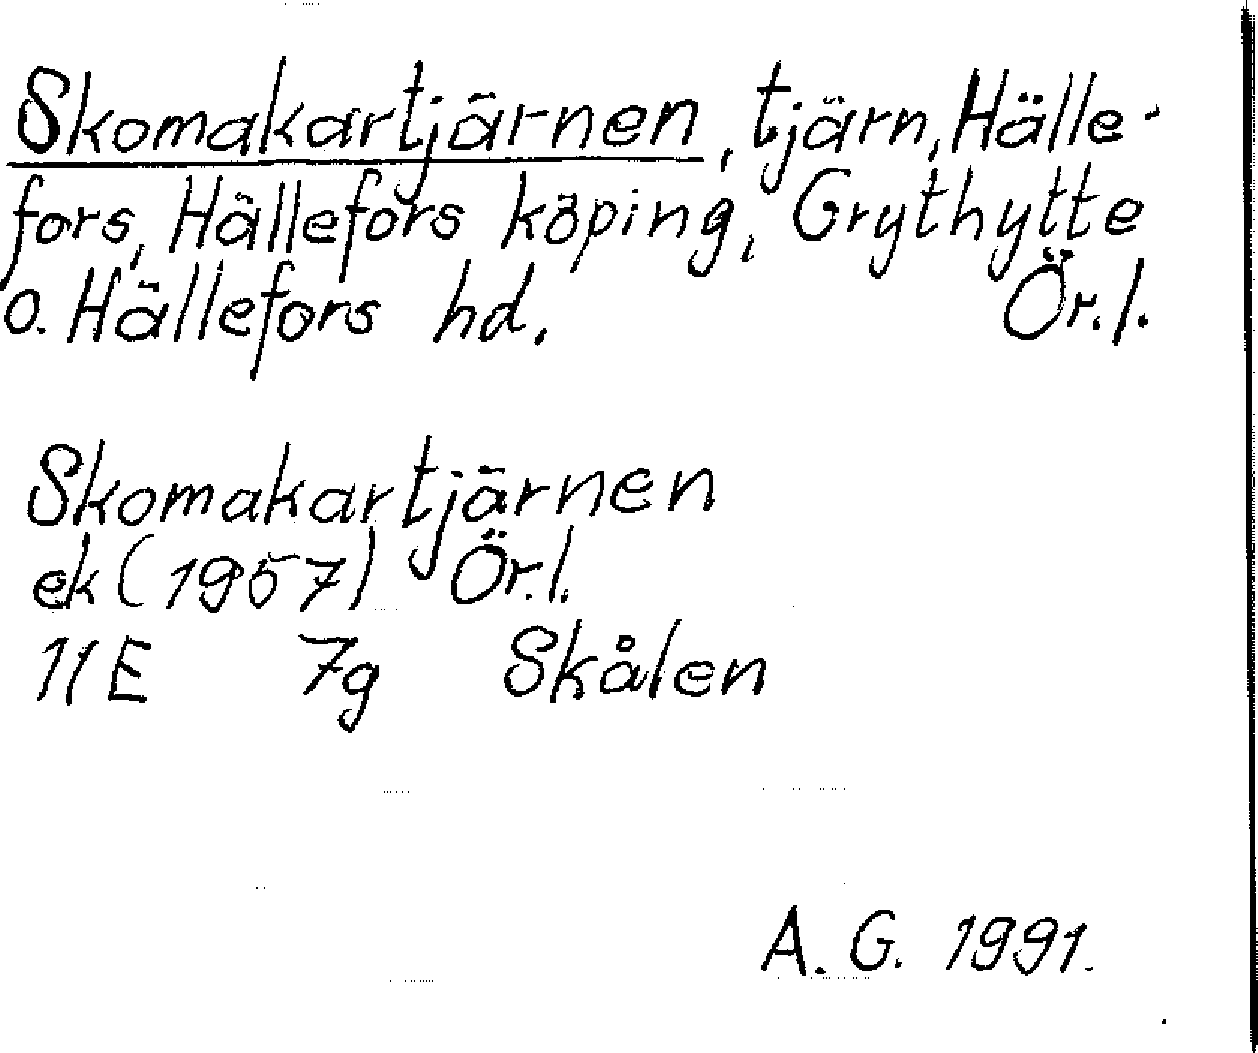 Skomakartjärnen, tjärn, Hälle-
fors, Hällefors köping, Grythytte
o. Hällefors hd. Ör.l.
Skomakartjärnen
ek (1957) Ör.l.
11E 7g Skålen
A. G. 1991.